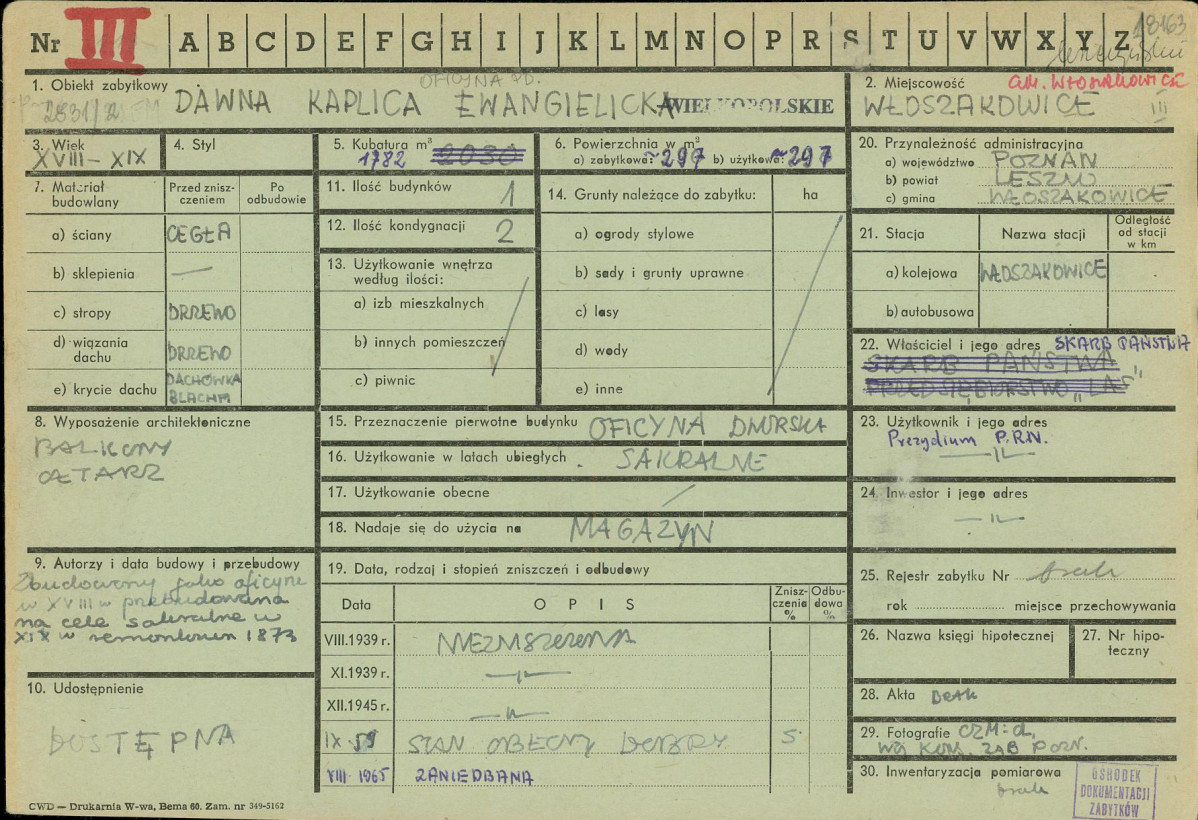 Nr III A B C D E F G H I J K L M N O P R S T U V W X Y Z
18163
1. Obiekt zabytkowy
OFICYNA PD.
DAWNA KAPLICA EWANGIELICKA
WIELKOPOLSKIE
2. Miejscowość
GM. WŁOSZAKOWICE
WŁOSZAKOWICE III
3. Wiek
XVIII – XIX
4. Styl
5. Kubatura m³
1782 2030
6. Powierzchnia w m²
a) zabytkowa: ~297 b) użytkowa: ~297
20. Przynależność administracyjna
a) województwo POZNAŃ
b) powiat LESZNO
c) gmina WŁOSZAKOWICE
7. Materiał budowlany
Przed znisz-
czeniem
Po
odbudowie
a) ściany CEGŁA
b) sklepienia —
c) stropy DRZEWO
d) wiązania
dachu DRZEWO
e) krycie dachu DACHÓWKA
BLACHA
11. Ilość budynków 1
12. Ilość kondygnacji 2
13. Użytkowanie wnętrza
według ilości:
a) izb mieszkalnych
b) innych pomieszczeń
c) piwnic
14. Grunty należące do zabytku: ha
a) ogrody stylowe
b) sady i grunty uprawne
c) lasy
d) wody
e) inne
21. Stacja
Nazwa stacji
Odległość
od stacji
w km
a) kolejowa WŁOSZAKOWICE
b) autobusowa
22. Właściciel i jego adres SKARB PAŃSTWA
SKARB PAŃSTWA
PRZEDSIĘBIORSTWO „LAS"
8. Wyposażenie architektoniczne
BALKONY
OŁTARZ
15. Przeznaczenie pierwotne budynku OFICYNA DWORSKA
16. Użytkowanie w latach ubiegłych SAKRALNE
17. Użytkowanie obecne
18. Nadaje się do użycia na MAGAZYN
23. Użytkownik i jego adres
Prezydium P.R.N.
—"—
24. Inwestor i jego adres
—"—
9. Autorzy i data budowy i przebudowy
Zbudowany jako oficyna
w XVIII w przebudowana
na cele sakralne w
XIX w remontowan 1873
19. Data, rodzaj i stopień zniszczeń i odbudowy
Data
O P I S
Znisz-
czenia
%
Odbu-
dowa
%
VIII.1939 r. NIEZNISZCZONA
XI.1939 r. —"—
XII.1945 r. —"—
IX 59 STAN OBECNY DOBRY 5
VIII 1965 ZANIEDBANA
25. Rejestr zabytku Nr brak
rok miejsce przechowywania
26. Nazwa księgi hipotecznej
27. Nr hipo-
teczny
10. Udostępnienie
DOSTĘPNA
28. Akta BRAK
29. Fotografie CZM:d,
WOJ KONS. ZAB POZN.
30. Inwentaryzacja pomiarowa
brak
OŚRODEK
DOKUMENTACJI
ZABYTKÓW
CWD — Drukarnia W-wa, Bema 60. Zam. nr 349-5162